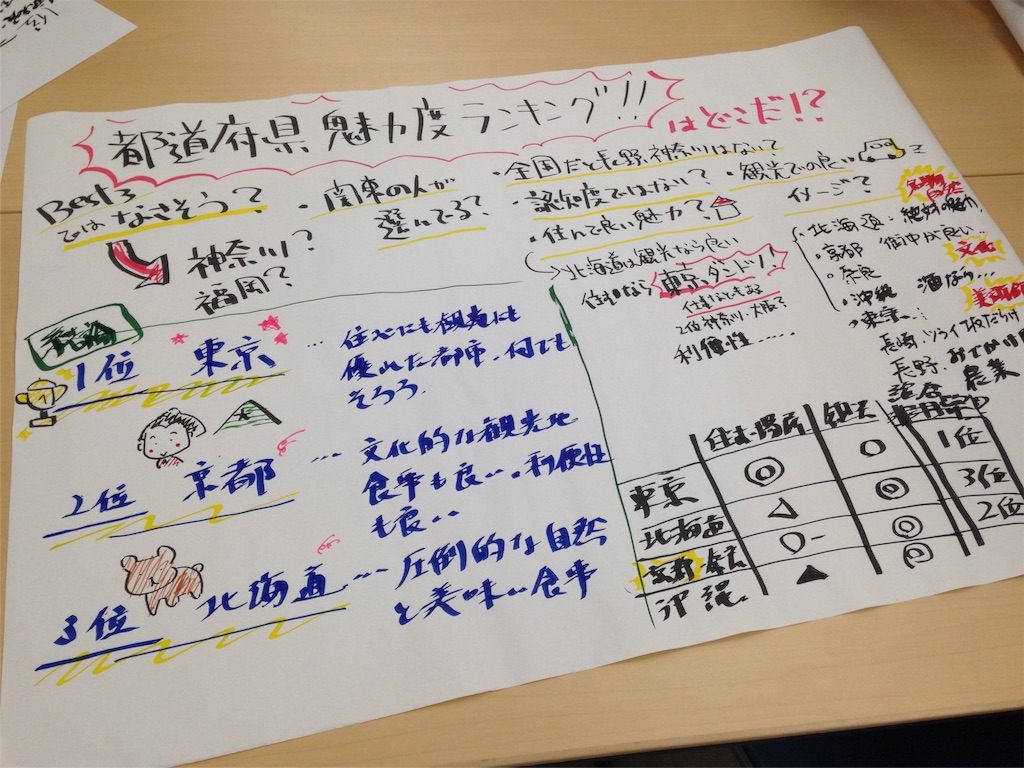 都道府県 魅力度ランキング!!
はどこだ!?
Best 3
ではなさそう?
神奈川?
福岡?
・関東の人が
選んでる?
・全国だと長野、神奈川はないて
・認知度ではない?
・住んで良い魅力?
北海道は観光なら良い
住むなら 東京ダントツ!
2位神奈川・大阪?
利便性……
・観光での良い
イメージ?
北海道:
・京都 街中が良い…
・奈良 文化
・沖縄 酒なら…
・東京…
長崎
長野
農業
結論
1位 東京 … 住むにも観光にも
優れた都市。何でも
そろう。
2位 京都 … 文化的な観光地
食事も良い。利便性
も良い
3位 北海道 … 圧倒的な自然
と美味い食事
住む場所 観光
東京 ◎ ○ 1位
北海道 △ ◎ 3位
京都・奈良 ○- ◎ 2位
沖縄 ▲ ◎